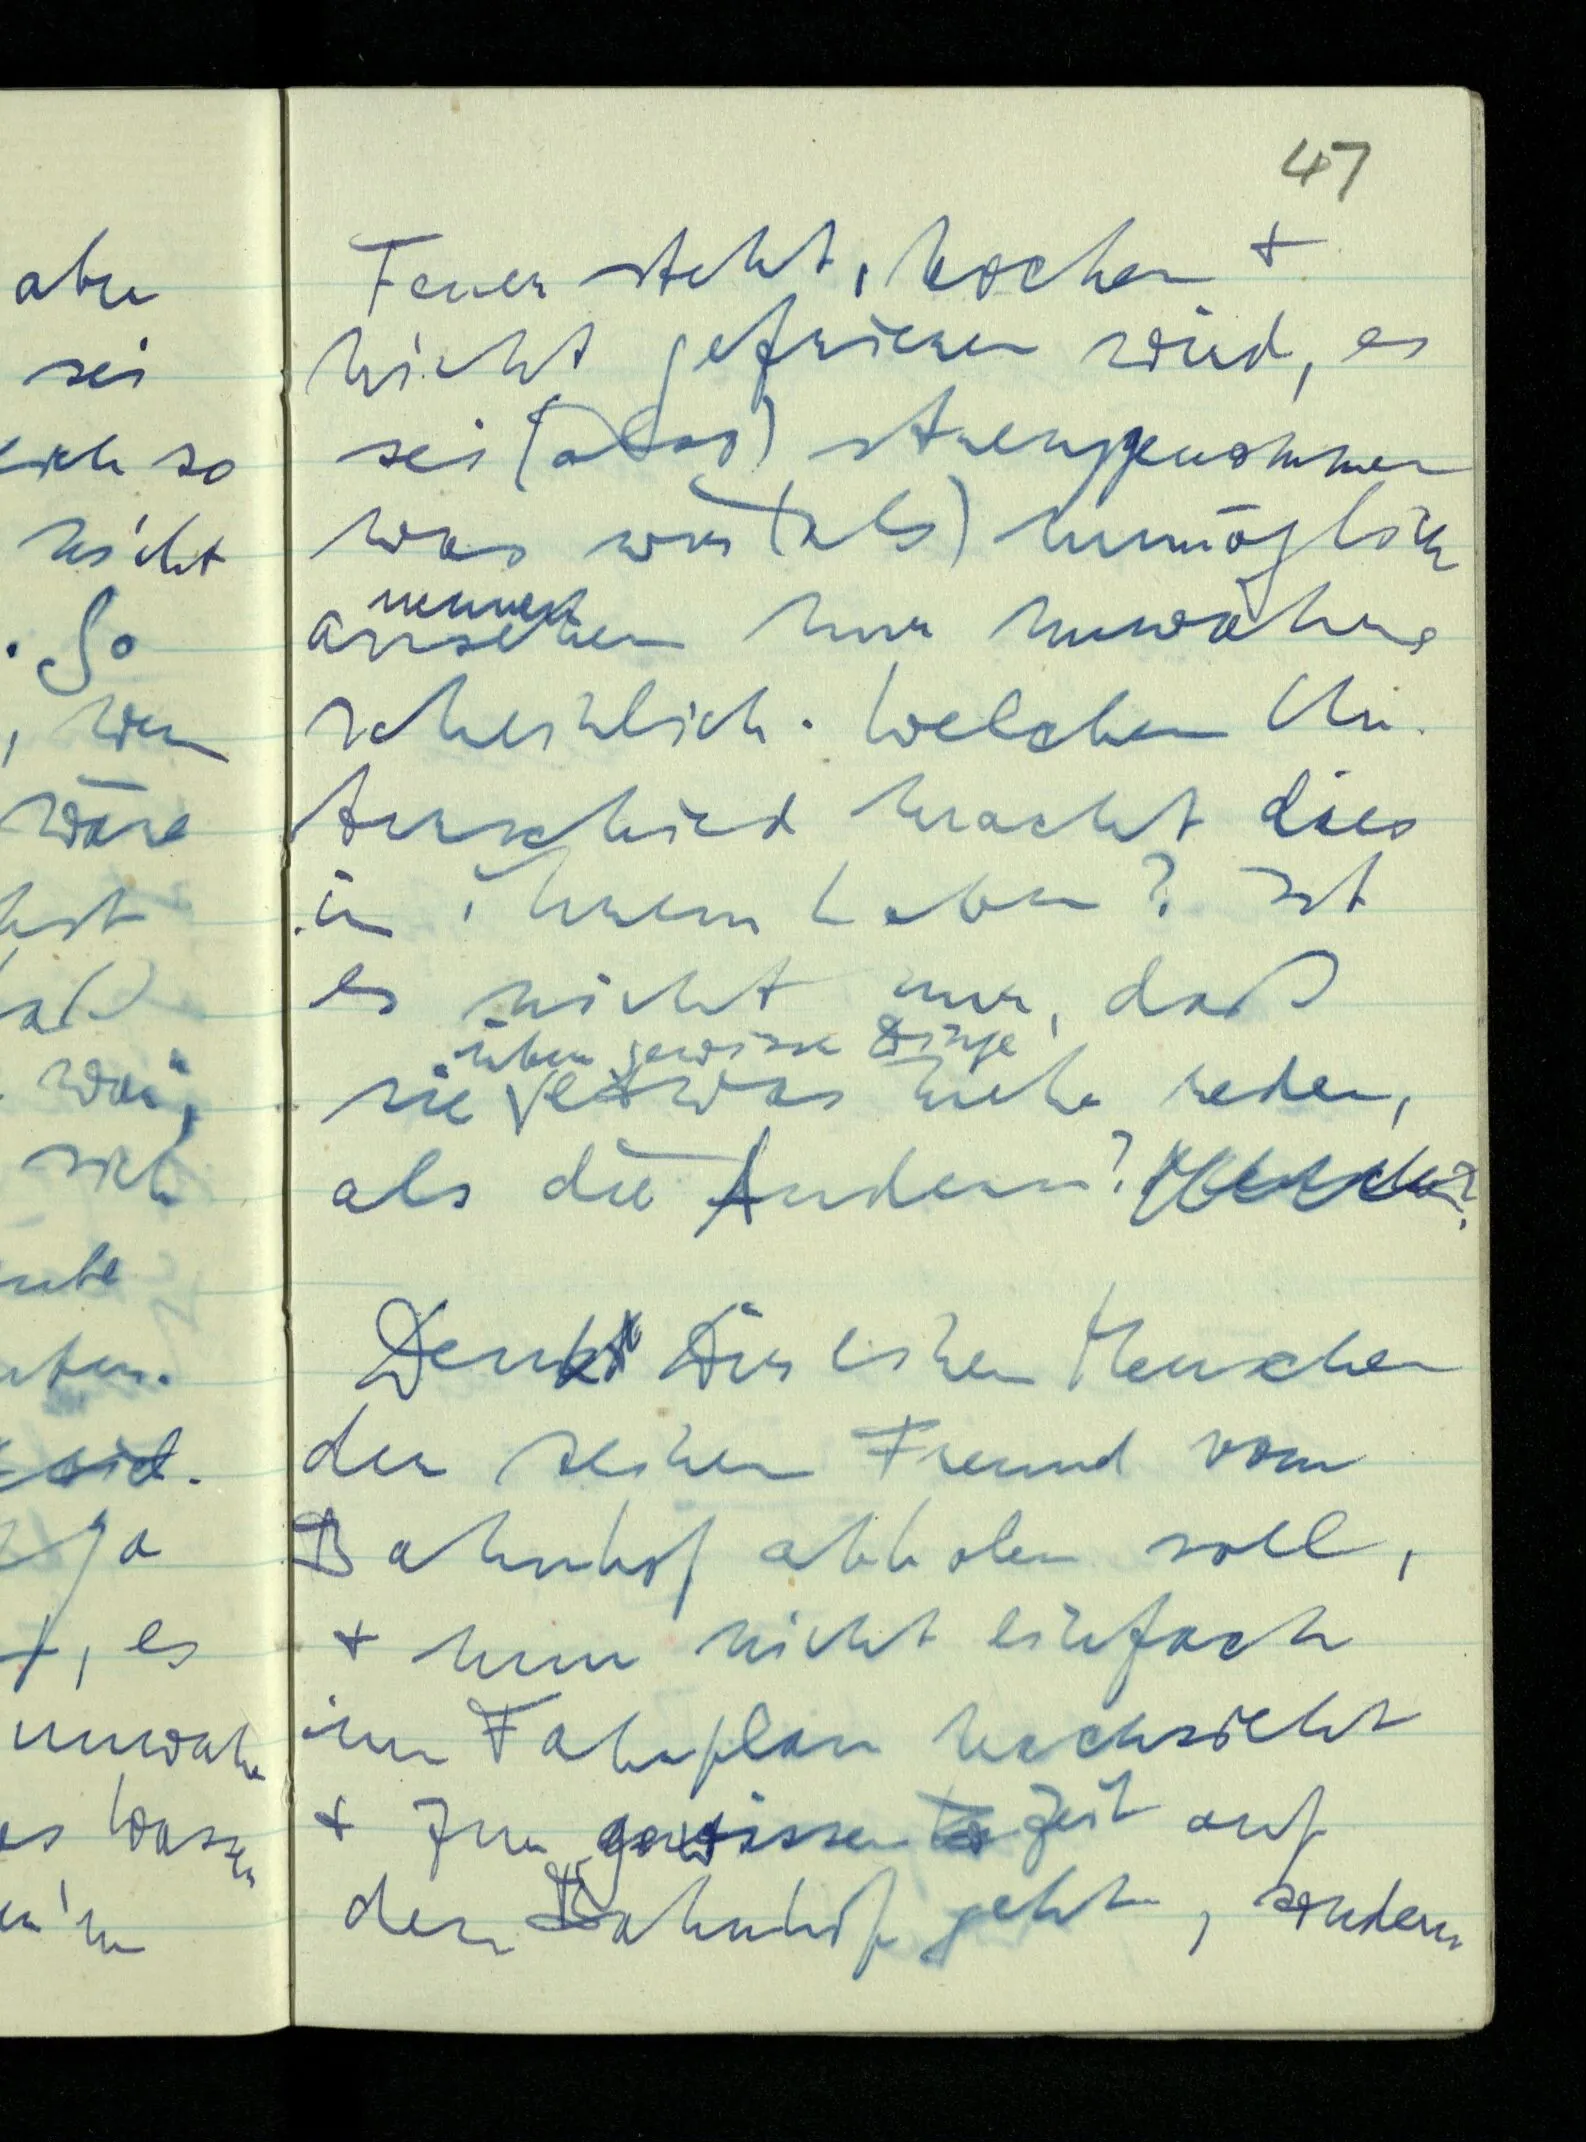 47
aber
sei
so
nicht
. So
, wen
wäre
sich
ja
, es
unwahr
Wasser
Feuer steht, kochen +
nicht gefrieren wird, es
sei (also) strenggenommen
was wir (als) unmöglich
nennen
ansehen nur unwahr
scheinlich. Welchen Un
terschied macht dies
in ihrem Leben? Ist
es nicht nur, daß
über gewisse Dinge
sie etwas mehr reden,
als die Andern?
Denk Dir einen Menschen
der seinen Freund vom
Bahnhof abholen soll,
+ nun nicht einfach
im Fahrplan nachsieht
+ zur gewissen Zeit auf
den Bahnhof geht, sondern